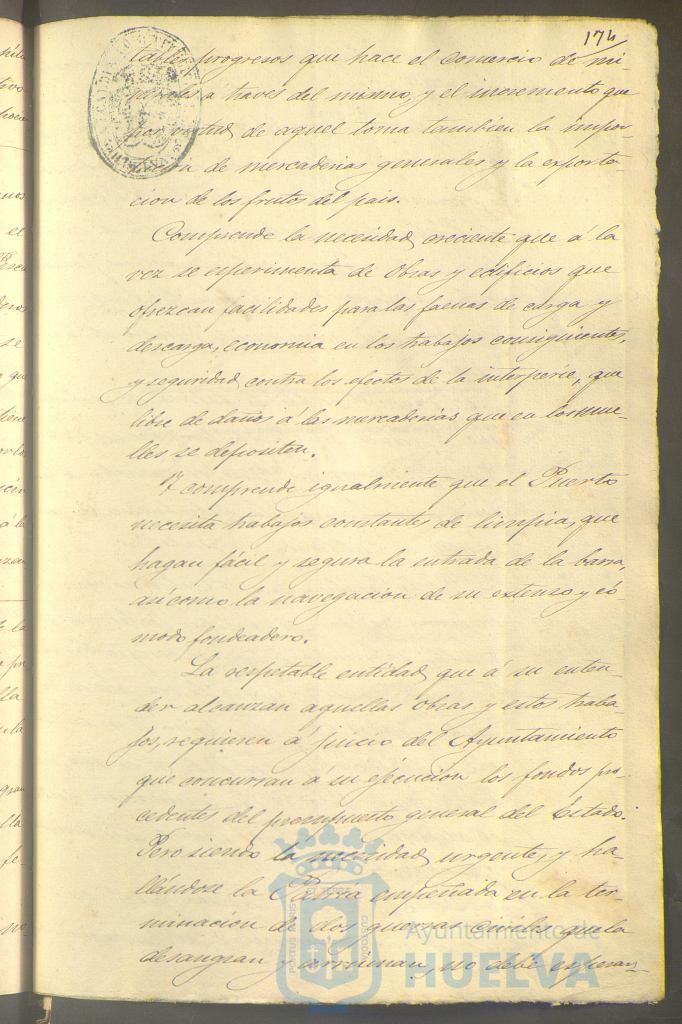 174
tables progresos que hace el comercio de mi-
nerales a traves del mismo, y el incremento que
por virtud de aquel toma tambien la impor-
tacion de mercaderias generales y la exporta-
cion de los frutos del pais.
Comprende la necesidad creciente que á la
vez se esperimenta de Obras y edificios que
ofrezcan facilidades para las faenas de carga y
descarga, economia en los trabajos consiguientes,
y seguridad contra los efectos de la interperie, que
libre de daños á las mercaderias que en los mue-
lles se depositen.
Y comprende igualmente que el Puerto
necesita trabajos constantes de limpia, que
hagan fácil y segura la entrada de la barra,
asi como la navegacion de su extenso y có-
modo fondeadero.
La respetable entidad que á su enten-
der alcanzan aquellas obras y estos traba-
jos, requieren á juicio del Ayuntamiento
que concurran á su ejecucion los fondos pro-
cedentes del presupuesto general del Estado.
Pero siendo la necesidad urgente, y ha-
llándose la Patria empeñada en la ter-
minacion de dos guerras civiles que la
desangran y arruinan, no debe esperar
Ayuntamiento de
HUELVA